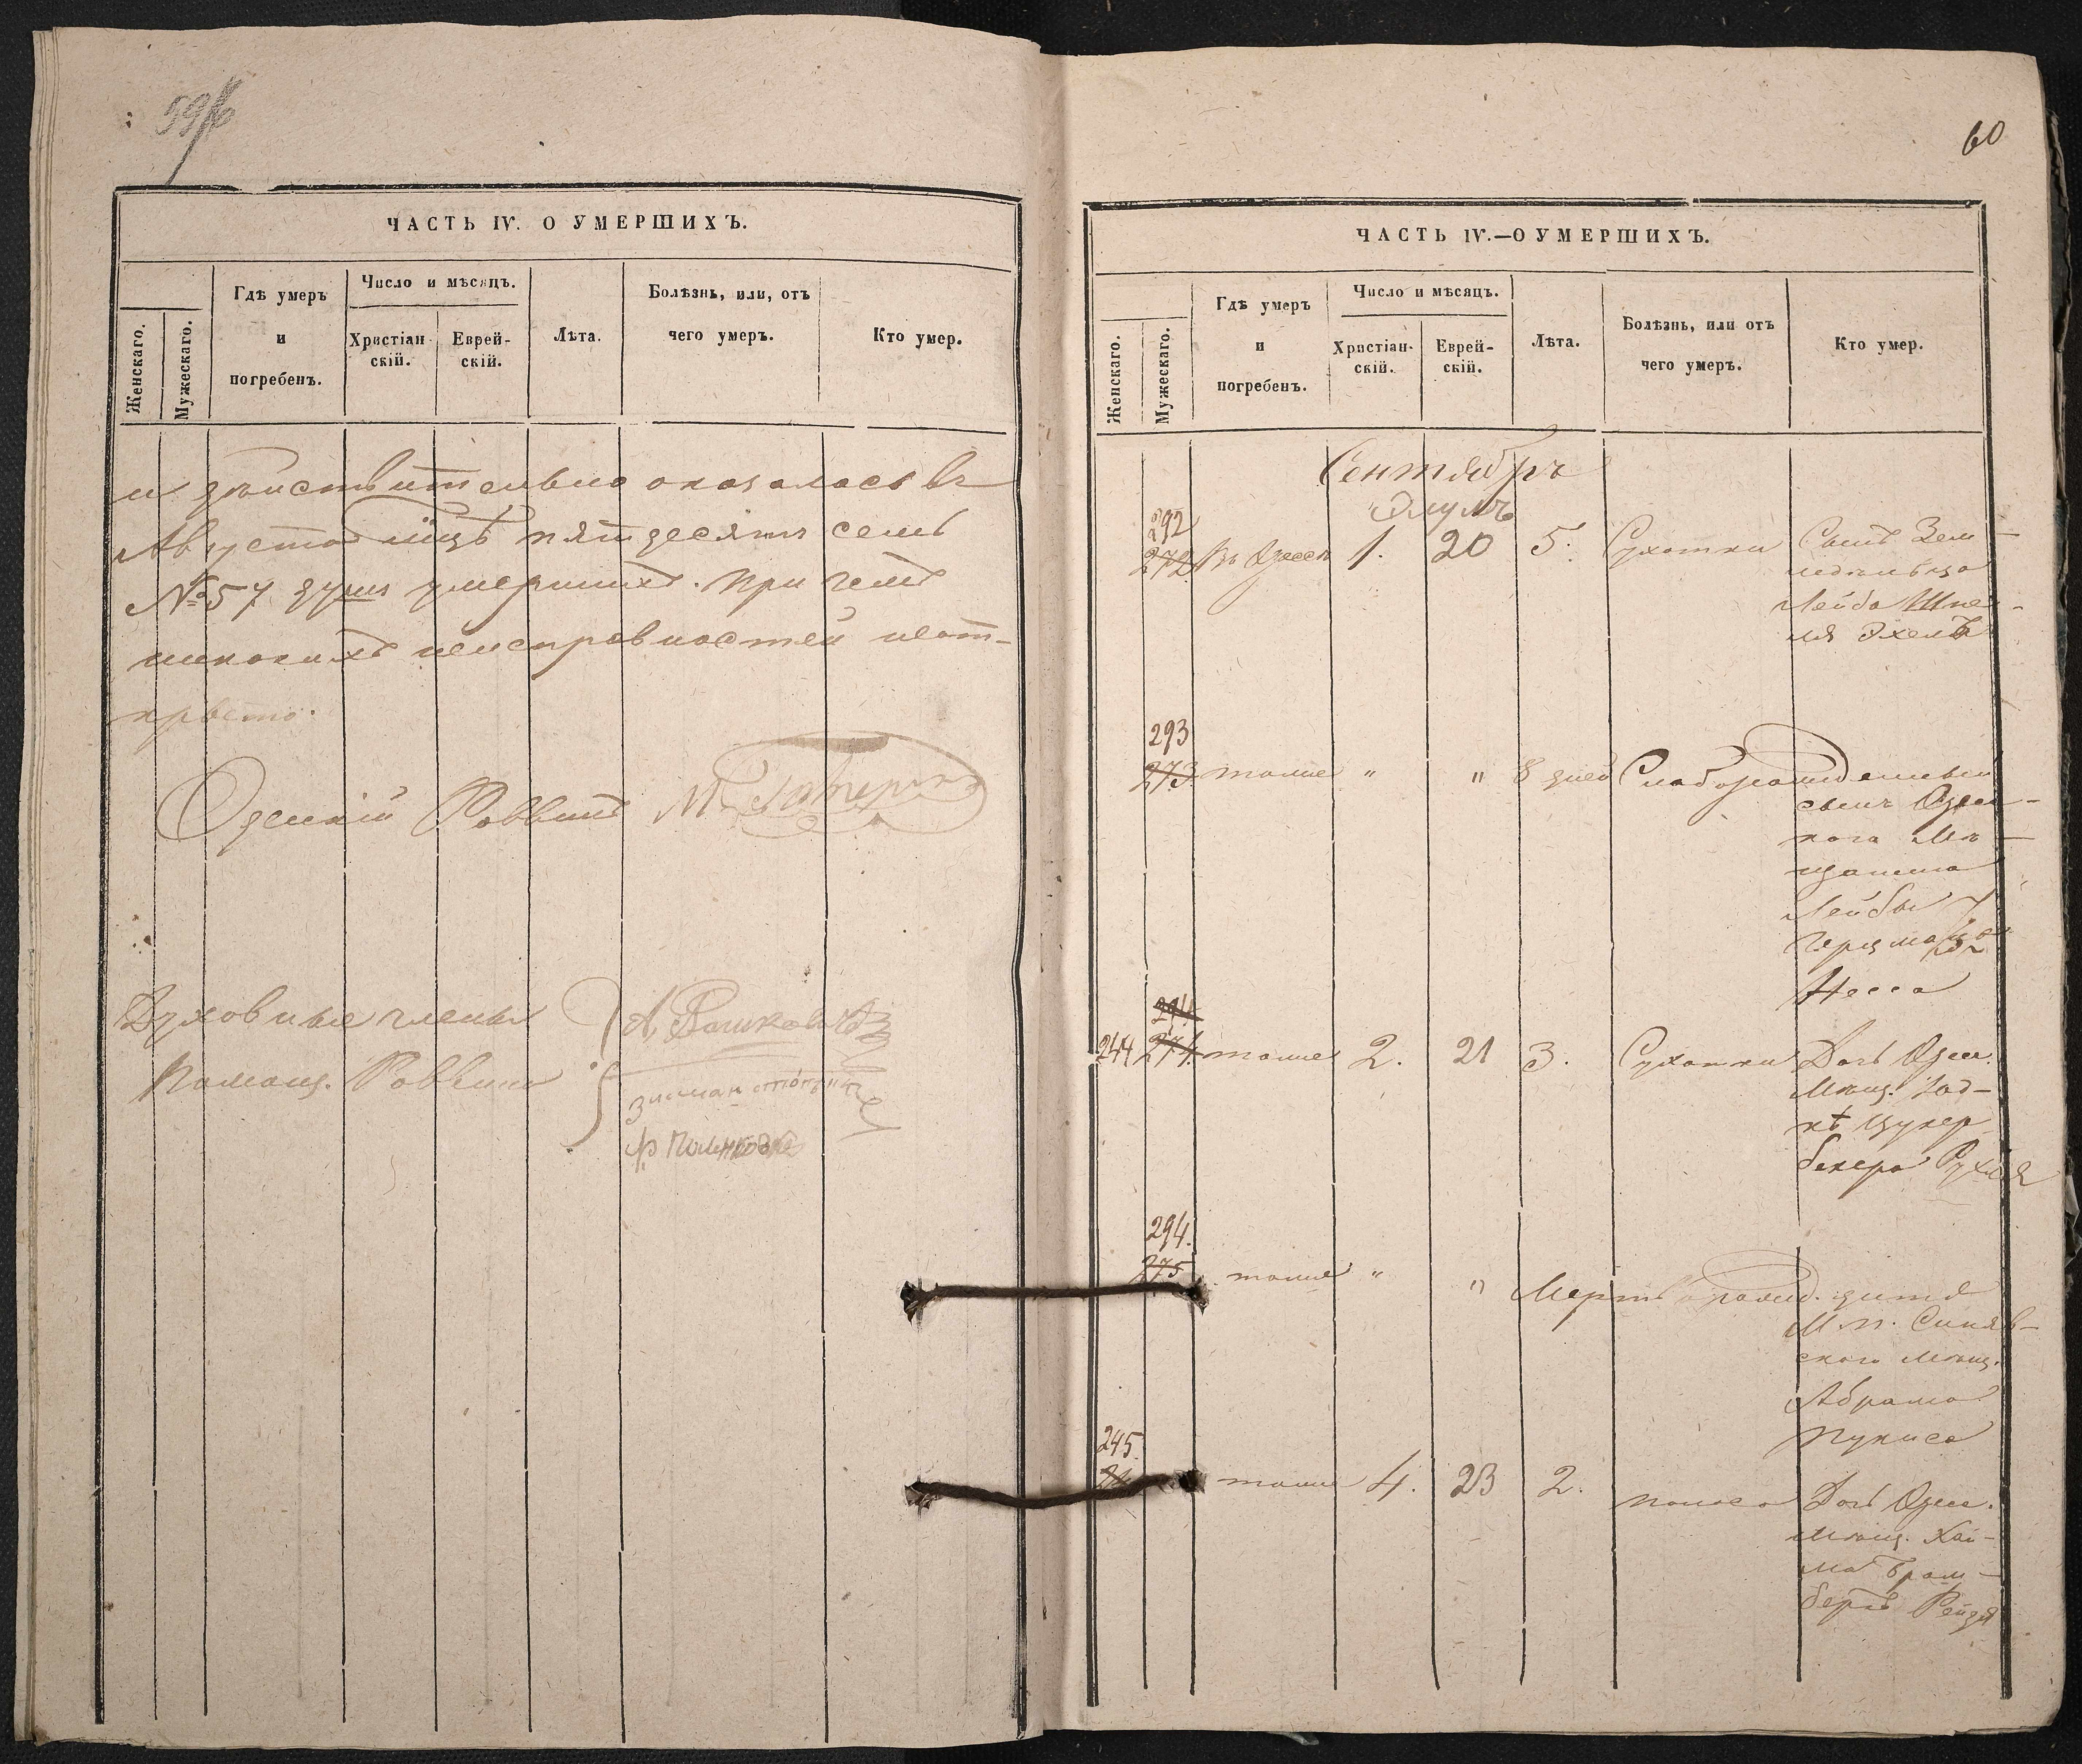 ЧАСТЬ IV. О УМЕРШИХЪ.
Женскаго.
Мужескаго.
Гдѣ умеръ
и
погребенъ.
Число и мѣсяцъ.
Христіан-
скій.
Еврей-
скій.
Лѣта.
Болѣзнь, или, отъ
чего умеръ.
Кто умер.
и действительно оказалось въ
Августѣ м-цѣ пятдесятъ семь
№ 57 душъ умершихъ. При чемъ
никакихъ неисправностей неот-
крыто.
Одесскій Раввинъ
Духовные члены
Помощ. Раввина
60
ЧАСТЬ IV.—О УМЕРШИХЪ.
Женскаго.
Мужескаго.
Гдѣ умеръ
и
погребенъ.
Число и мѣсяцъ.
Христіан-
скій.
Еврей-
скій.
Лѣта.
Болѣзнь, или отъ
чего умеръ.
Кто умер.
Сентябрь
Элулъ
292
272 Въ Одессѣ 1. 20 5. Сухотки Сынъ Зем-
ледѣльца
Лейба Шле-
ма
293
273 тамже " " 8 дней Слаборожденный
сынъ Одес-
каго Мѣ-
щанина
Лейбы
Герцма
Несса
294
244 274 тамже 2. 21 3. Сухотки Дочь Одес.
Мѣщ.
Цукер
бекера Рухля
294.
275 тамже " " Мертворожд. дитя
М. п. Синяв-
скаго мѣщ.
Абрама
Пукиса
245.
тамже 4. 23 2. поноса Дочь Одес.
мѣщ. Хаи-
ма Брам-
бергъ Рейзя